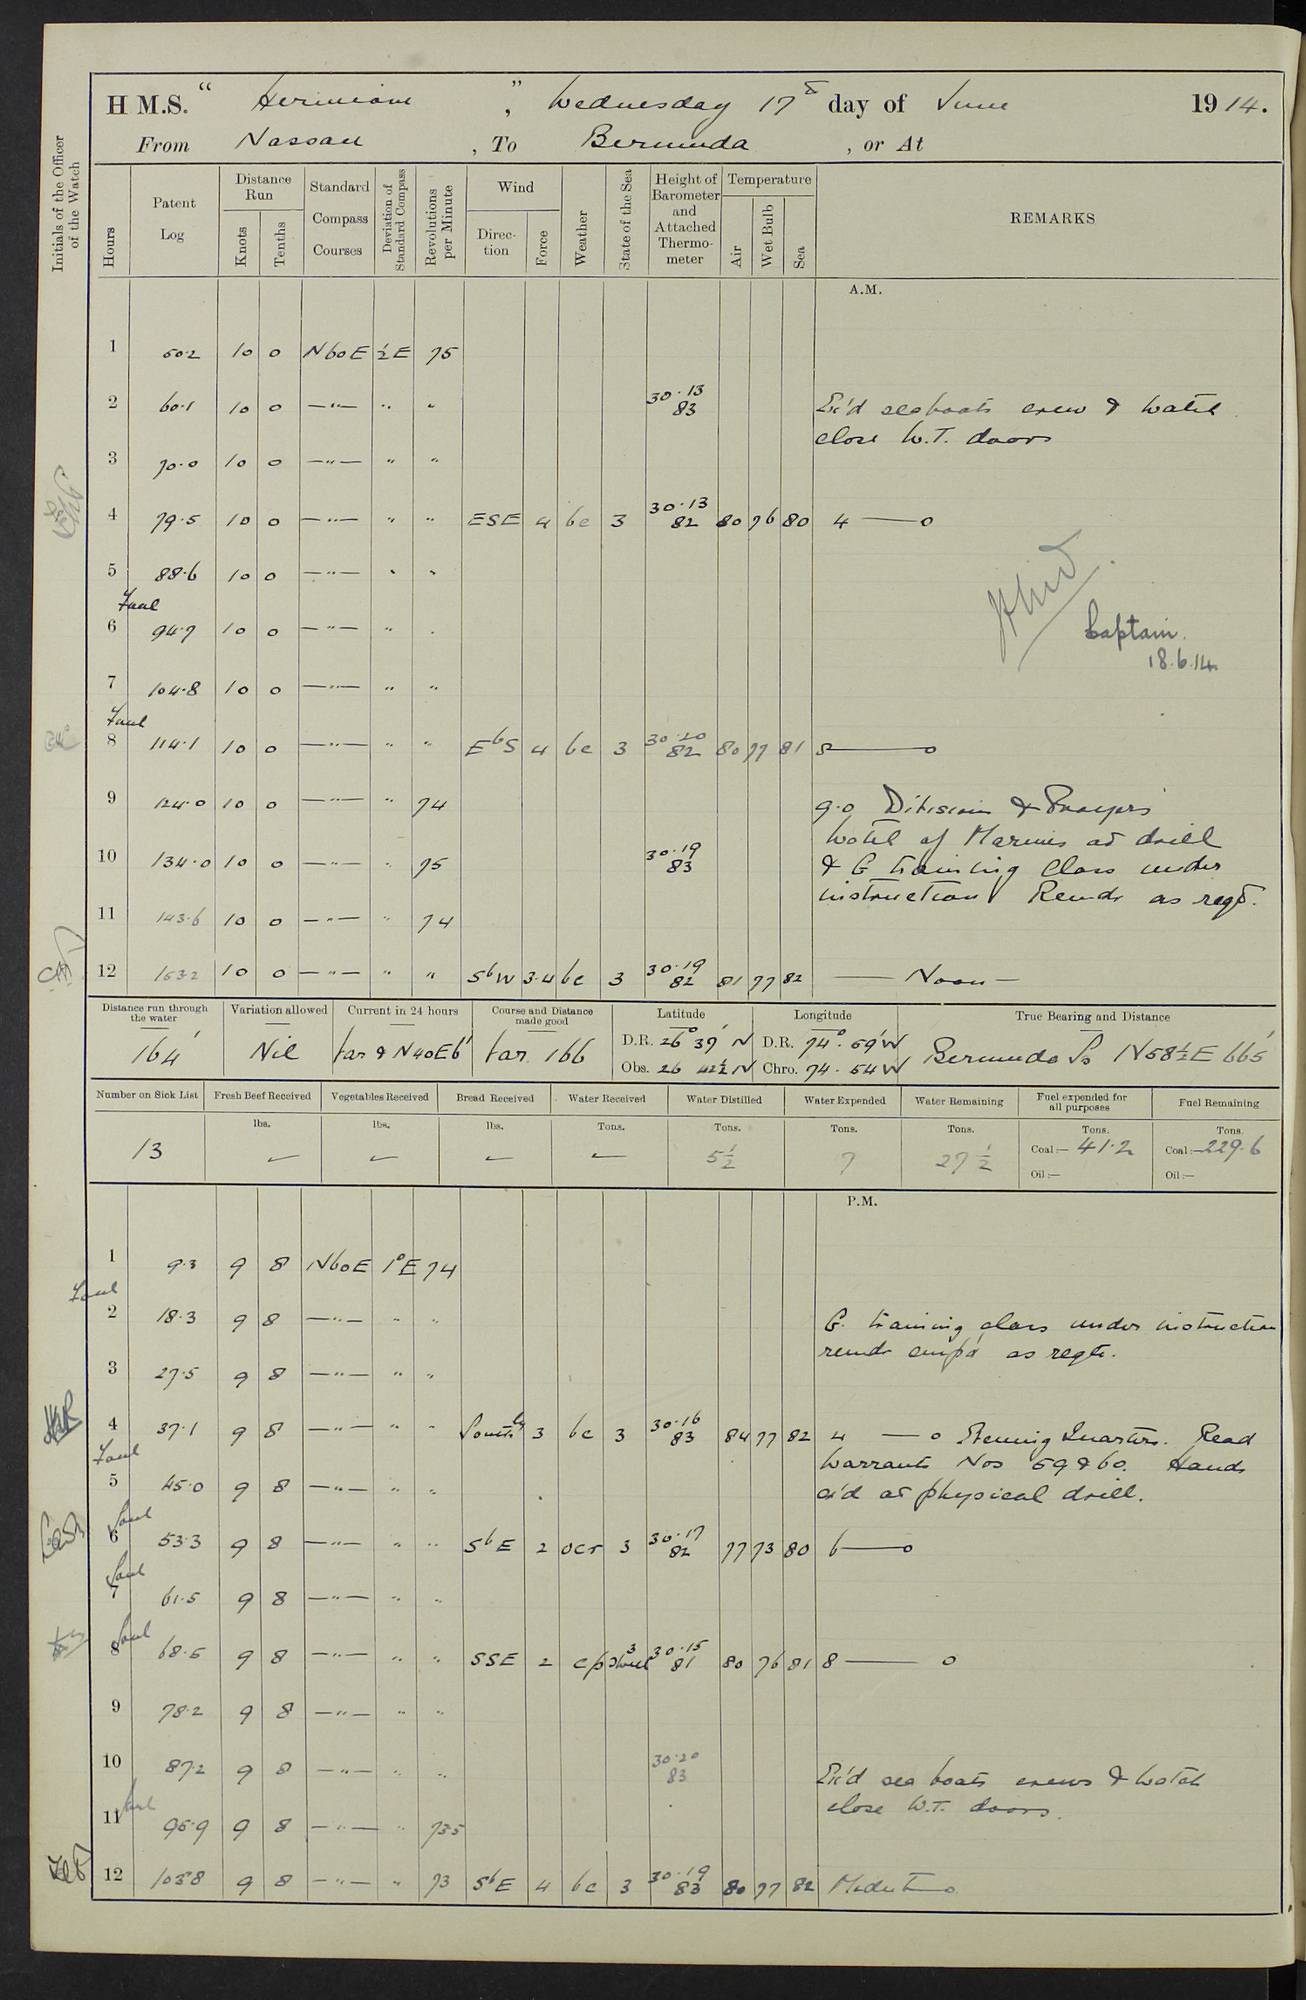 H.M.S. " Hermione ", Wednesday 17th day of June 1914.
From Nassau, To Bermuda, or At
Initials of the Officer of the Watch
Hours
Patent Log
Distance Run
Knots
Tenths
Standard Compass Courses
Deviation of Standard Compass
Revolutions per Minute
Wind
Direction
Force
Weather
State of the Sea
Height of Barometer and Attached Thermometer
Temperature
Air
Wet Bulb
Sea
REMARKS
A.M.
1 50.2 10 0 N60E ½E 75
2 60.1 10 0 —"— " " 30.13 83 Ex'd sea boats crew & watch
close W.T. doors
3 70.0 10 0 —"— " "
4 79.5 10 0 —"— " " ESE 4 bc 3 30.13 82 80 76 80 4 —— 0
5 88.6 10 0 —"— " "
Foul
6 94.7 10 0 —"— " "
Captain.
18.6.14
7 104.8 10 0 —"— " "
Foul
8 114.1 10 0 —"— " " EbS 4 bc 3 30.20 82 80 77 81 8 —— 0
9 124.0 10 0 —"— " 74 9.0 Division & Prayers
Watch of Marines at drill
10 134.0 10 0 —"— " 75 30.19 83 & G training Class under
instruction Remdr as reqd.
11 143.6 10 0 —"— " 74
12 153.2 10 0 —"— " " SbW 3.4 bc 3 30.19 82 81 77 82 —— Noon —
Distance run through the water
164'
Variation allowed
Nil
Current in 24 hours
Var & N40E 6'
Course and Distance made good
Var. 166
Latitude
D.R. 26° 39' N
Obs. 26 42½ N
Longitude
D.R. 74° 59' W
Chro. 74. 54 W
True Bearing and Distance
Bermuda Is N58½E 665'
Number on Sick List
13
Fresh Beef Received
lbs.
Vegetables Received
lbs.
Bread Received
lbs.
Water Received
Tons.
Water Distilled
Tons.
5½
Water Expended
Tons.
7
Water Remaining
Tons.
27½
Fuel expended for all purposes
Tons.
Coal:— 41.2
Oil:—
Fuel Remaining
Tons.
Coal:— 229.6
Oil:—
P.M.
1 9.3 9 8 N60E 1°E 74
Foul
2 18.3 9 8 —"— " " G. training class under instruction
remdr emp'd as reqte.
3 27.5 9 8 —"— " "
4 37.1 9 8 —"— " " Southly 3 bc 3 30.16 83 84 77 82 4 — 0 Evening Quarters. Read
Foul
Warrants Nos 59 & 60. Hands
5 45.0 9 8 —"— " "
ex'd at physical drill.
Foul
6 53.3 9 8 —"— " " SbE 2 ocr 3 30.17 82 77 73 80 6 —— 0
Foul
7 61.5 9 8 —"— " "
Foul
8 68.5 9 8 —"— " " SSE 2 3 30.15 81 80 76 81 8 —— 0
9 78.2 9 8 —"— " "
10 87.2 9 8 —"— " " 30.20 83 Ex'd sea boats crews & watch
close W.T. doors.
Foul
11 95.9 9 8 —"— " 73.5
12 105.8 9 8 —"— " 73 SbE 4 bc 3 30.19 83 80 77 82